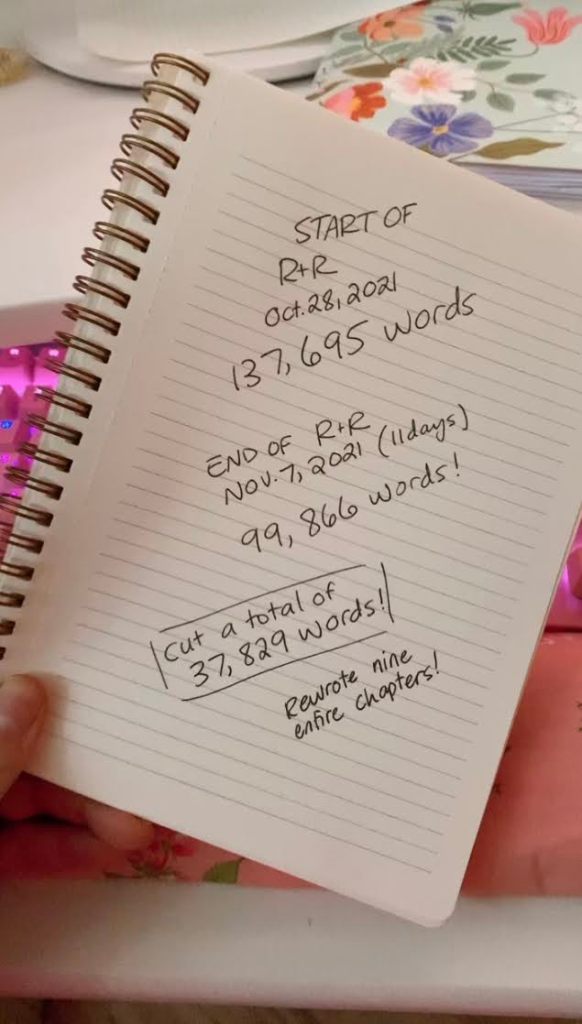 START OF
R+R
Oct. 28, 2021
137,695 words
END OF R+R
NOV. 7, 2021 (11 days)
99,866 words!
Cut a total of
37,829 words!
Rewrote nine
entire chapters!